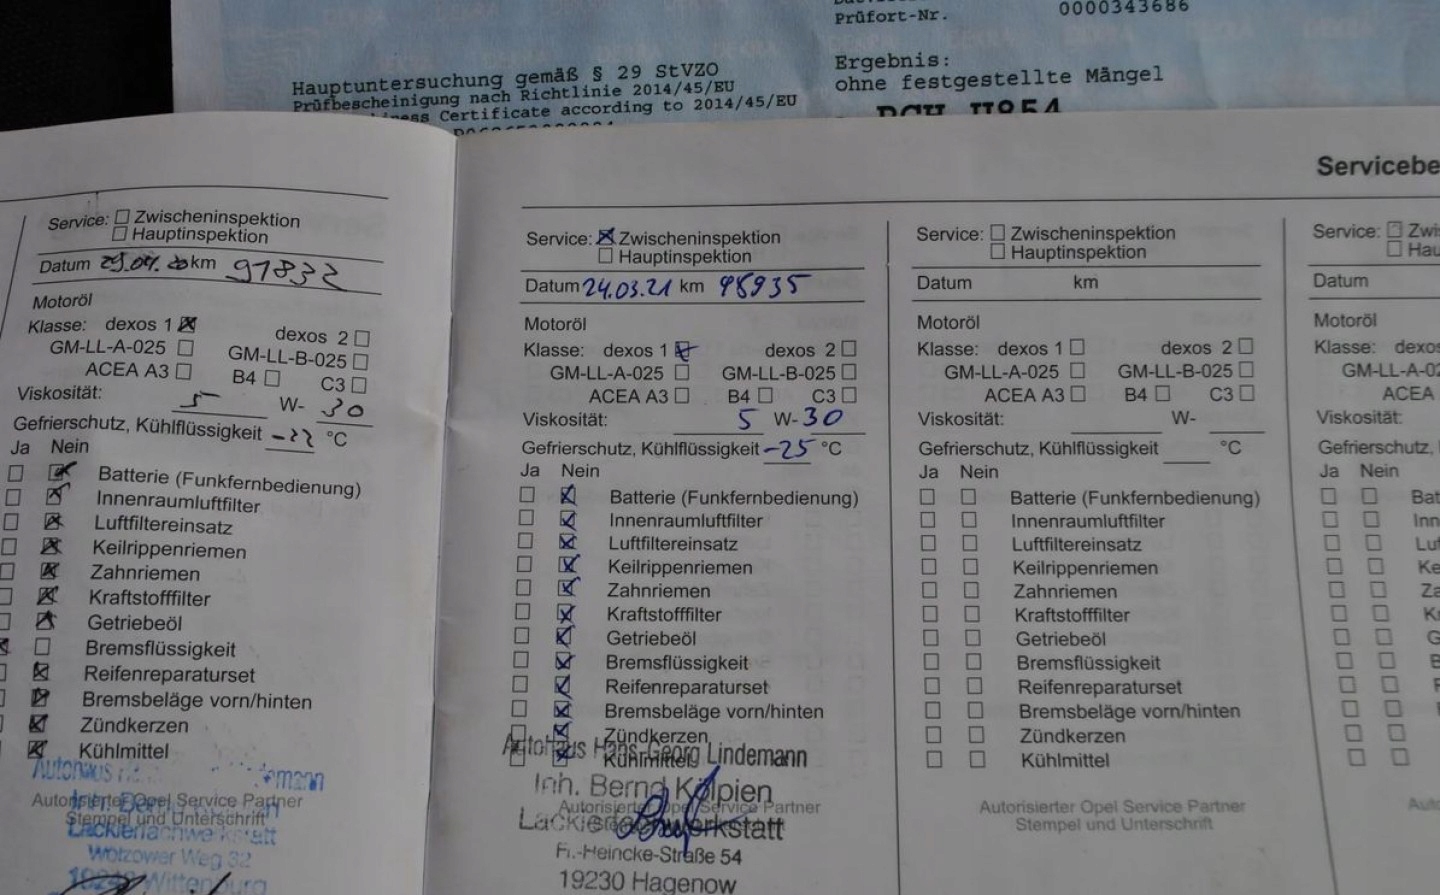 Prüfort-Nr. 0000343686
Hauptuntersuchung gemäß § 29 StVZO
Prüfbescheinigung nach Richtlinie 2014/45/EU
Certificate according to 2014/45/EU
Ergebnis:
ohne festgestellte Mängel
Service: Zwischeninspektion
Hauptinspektion
Datum 29.04.20 km 91832
Motoröl
Klasse: dexos 1 dexos 2
GM-LL-A-025 GM-LL-B-025
ACEA A3 B4 C3
Viskosität: 5 W- 30
Gefrierschutz, Kühlflüssigkeit -22 °C
Ja Nein
Batterie (Funkfernbedienung)
Innenraumluftfilter
Luftfiltereinsatz
Keilrippenriemen
Zahnriemen
Kraftstofffilter
Getriebeöl
Bremsflüssigkeit
Reifenreparaturset
Bremsbeläge vorn/hinten
Zündkerzen
Kühlmittel
Autohaus
Autorisierter Opel Service Partner
Stempel und Unterschrift
Lackierfachwerkstatt
Wölzower Weg 32
Wittenburg
Service: Zwischeninspektion
Hauptinspektion
Datum 24.03.21 km 98935
Motoröl
Klasse: dexos 1 dexos 2
GM-LL-A-025 GM-LL-B-025
ACEA A3 B4 C3
Viskosität: 5 W-30
Gefrierschutz, Kühlflüssigkeit -25 °C
Ja Nein
Batterie (Funkfernbedienung)
Innenraumluftfilter
Luftfiltereinsatz
Keilrippenriemen
Zahnriemen
Kraftstofffilter
Getriebeöl
Bremsflüssigkeit
Reifenreparaturset
Bremsbeläge vorn/hinten
Zündkerzen
Kühlmittel
Autohaus Hans-Georg Lindemann
Inh. Bernd Kölpien
Autorisierter Opel Service Partner
Fr.-Heincke-Straße 54
19230 Hagenow
Service: Zwischeninspektion
Hauptinspektion
Datum km
Motoröl
Klasse: dexos 1 dexos 2
GM-LL-A-025 GM-LL-B-025
ACEA A3 B4 C3
Viskosität: W-
Gefrierschutz, Kühlflüssigkeit °C
Ja Nein
Batterie (Funkfernbedienung)
Innenraumluftfilter
Luftfiltereinsatz
Keilrippenriemen
Zahnriemen
Kraftstofffilter
Getriebeöl
Bremsflüssigkeit
Reifenreparaturset
Bremsbeläge vorn/hinten
Zündkerzen
Kühlmittel
Autorisierter Opel Service Partner
Stempel und Unterschrift
Servicebe
Service: Zwi
Hau
Datum
Motoröl
Klasse: dexos
GM-LL-A-02
ACEA
Viskosität:
Gefrierschutz,
Ja Nein